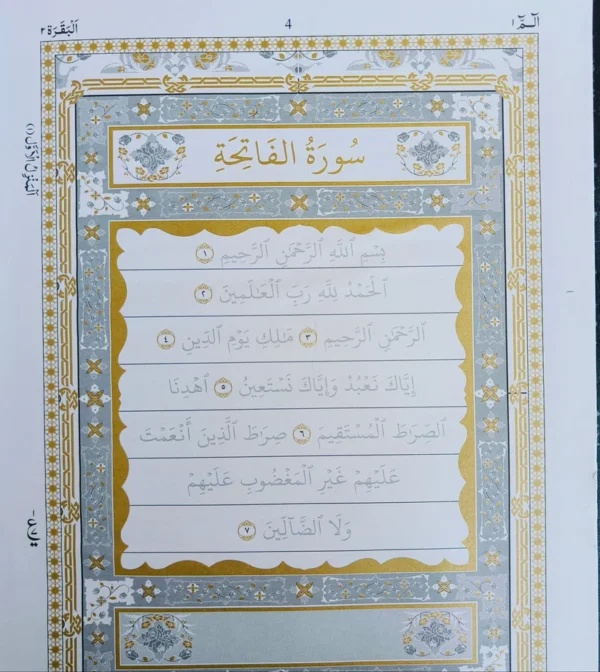 الٓمّٓ ١
4
اَلْبَقَرَة ٢
سُورَةُ الفَاتِحَةِ
بِسْمِ ٱللَّهِ ٱلرَّحْمَٰنِ ٱلرَّحِيمِ ١
ٱلْحَمْدُ لِلَّهِ رَبِّ ٱلْعَٰلَمِينَ ٢
ٱلرَّحْمَٰنِ ٱلرَّحِيمِ ٣ مَٰلِكِ يَوْمِ ٱلدِّينِ ٤
إِيَّاكَ نَعْبُدُ وَإِيَّاكَ نَسْتَعِينُ ٥ ٱهْدِنَا
ٱلصِّرَٰطَ ٱلْمُسْتَقِيمَ ٦ صِرَٰطَ ٱلَّذِينَ أَنْعَمْتَ
عَلَيْهِمْ غَيْرِ ٱلْمَغْضُوبِ عَلَيْهِمْ
وَلَا ٱلضَّآلِّينَ ٧